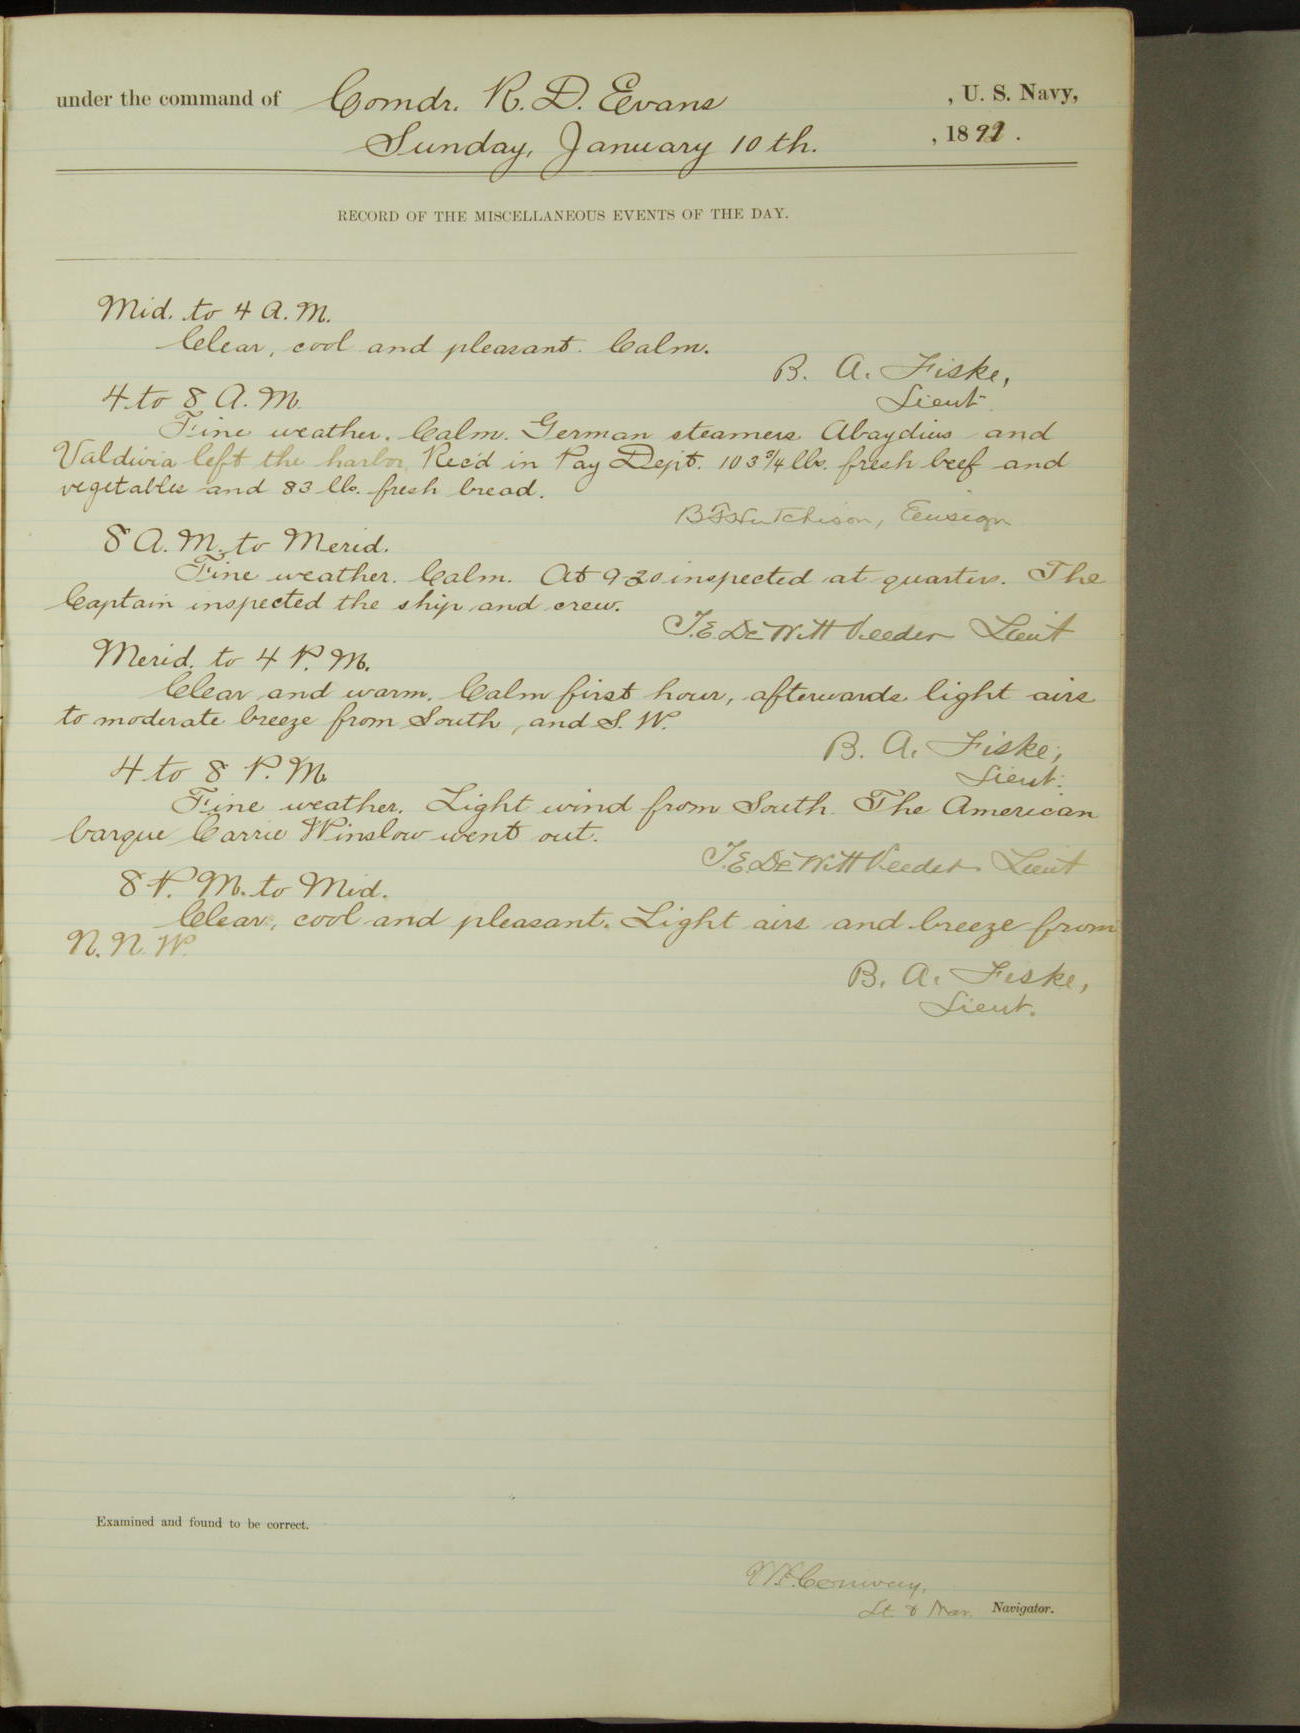 under the command of Comdr. R. D. Evans , U. S. Navy,
Sunday, January 10th. , 1892.
RECORD OF THE MISCELLANEOUS EVENTS OF THE DAY.
Mid. to 4 A.M.
Clear, cool and pleasant. Calm.
B. A. Fiske,
Lieut.
4 to 8 A.M.
Fine weather. Calm. German steamers Abaydius and
Valdivia left the harbor. Rec'd in Pay Dept. 103 3/4 lbs. fresh beef and
vegetables and 83 lbs. fresh bread.
B F Hutchison, Ensign
8 A.M. to Merid.
Fine weather. Calm. At 9-20 inspected at quarters. The
Captain inspected the ship and crew.
T.E. DeWitt Veeder Lieut
Merid. to 4 P.M.
Clear and warm. Calm first hour, afterwards light airs
to moderate breeze from South, and S.W.
B. A. Fiske,
Lieut.
4 to 8 P.M.
Fine weather. Light wind from South. The American
barque Carrie Winslow went out.
T.E. DeWitt Veeder Lieut
8 P.M. to Mid.
Clear, cool and pleasant. Light airs and breeze from
N.N.W.
B. A. Fiske,
Lieut.
Examined and found to be correct.
Conway,
Lt. & Nav. Navigator.